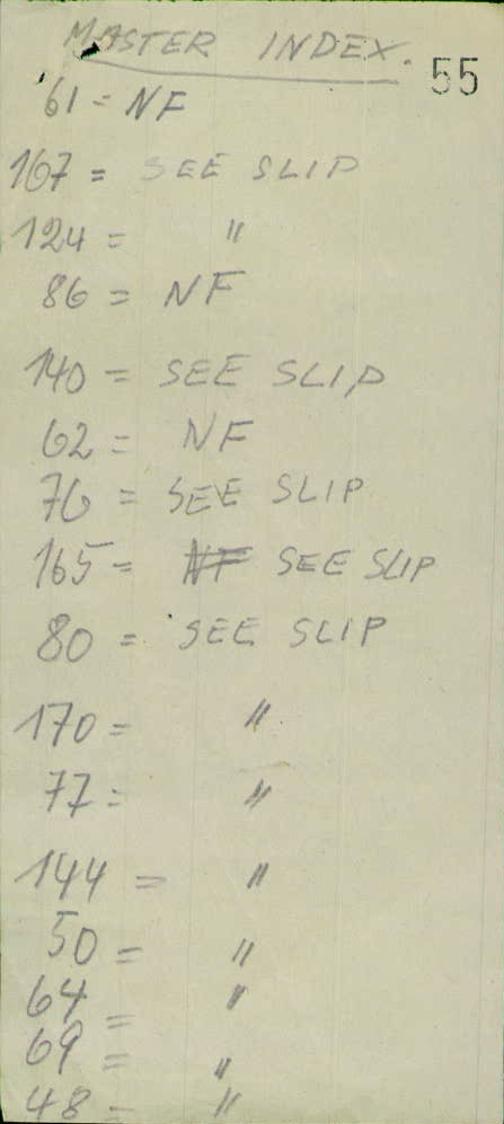 MASTER INDEX.
55
61 = NF
167 = SEE SLIP
124 = "
86 = NF
140 = SEE SLIP
62 = NF
76 = SEE SLIP
165 = NF SEE SLIP
80 = SEE SLIP
170 = "
77 = "
144 = "
50 = "
64 = "
69 = "
48 = "